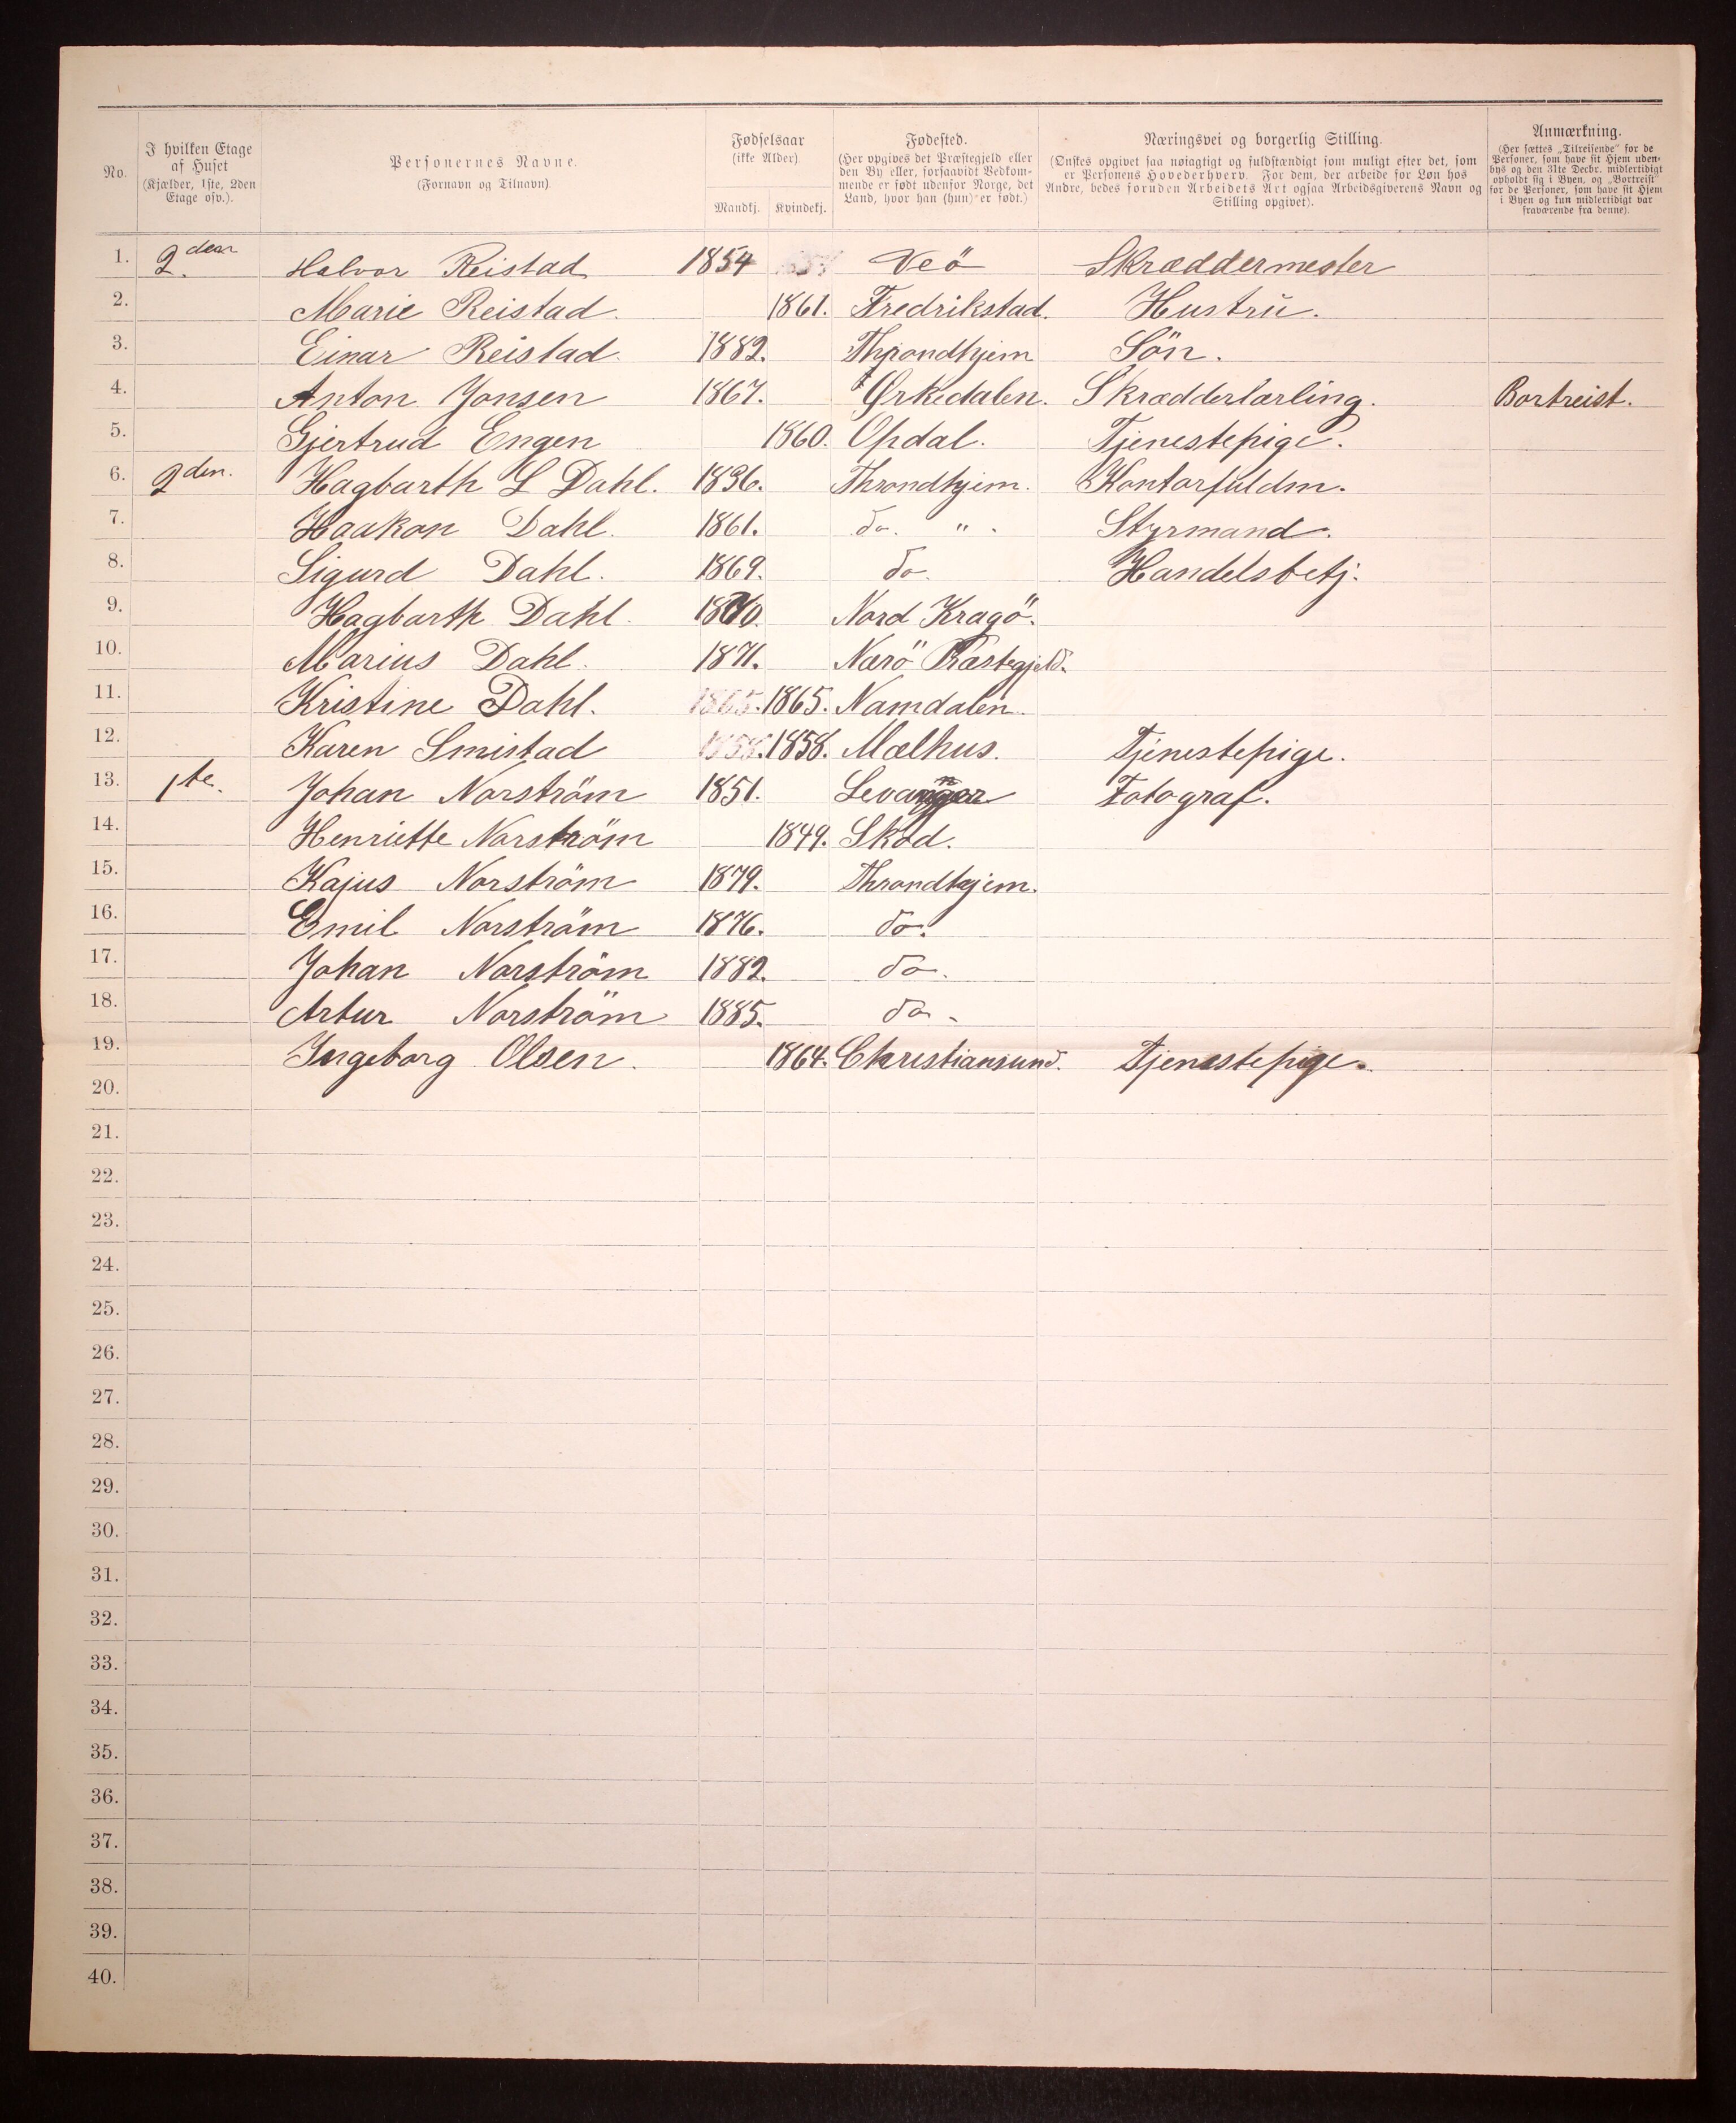 No.
I hvilken Etage
af Huset
(Kjælder, 1ste, 2den
Etage osv.).
Personernes Navne.
(Fornavn og Tilnavn).
Fødselsaar
(ikke Alder).
Mandkj. Kvindekj.
Fødested.
(Her opgives det Præstegjeld eller
den By eller, forsaavidt Vedkom-
mende er født udenfor Norge, det
Land, hvor han (hun) er født.)
Næringsvei og borgerlig Stilling.
(Ønskes opgivet saa nøiagtigt og fuldstændigt som muligt efter det, som
er Personens Hovederhverv. For dem, der arbeide for Løn hos
Andre, bedes foruden Arbeidets Art ogsaa Arbeidsgiverens Navn og
Stilling opgivet).
Anmærkning.
(Her sættes „Tilreisende" for de
Personer, som have sit Hjem uden-
bys og den 31te Decbr. midlertidigt
opholdt sig i Byen, og „Bortreist"
for de Personer, som have sit Hjem
i Byen og kun midlertidigt var
fraværende fra denne).
1. 2den Halvor Reistad 1854 Veö Skræddermester
2. Marie Reistad. 1861. Fredrikstad. Hustru.
3. Einar Reistad. 1882. Throndhjem Sön.
4. Anton Jonsen 1867. Ørkedalen. Skrædderlærling. Bortreist.
5. Gjertrud Engen 1860. Opdal. Tjenestepige.
6. 2den. Hagbarth L Dahl. 1836. Throndhjem. Kontorfuldm.
7. Haakon Dahl. 1861. do. " . Styrmand.
8. Sigurd Dahl. 1869. do. Handelsbetj.
9. Hagbarth Dahl. 1870. Nord Kragö.
10. Marius Dahl. 1871. Nærö Præstegjeld.
11. Kristine Dahl. 1865. 1865. Namdalen.
12. Karen Smistad 1858. 1858. Mælhus. Tjenestepige.
13. 1te. Johan Norström 1851. Levanger Fotograf.
14. Henriette Norström 1849. Skod.
15. Kajus Norström 1879. Throndhjem.
16. Emil Norström 1876. do.
17. Johan Norström 1882. do.
18. Artur Norström 1885. do.
19. Ingeborg Olsen. 1864. Christiansund. Tjenestepige.
20.
21.
22.
23.
24.
25.
26.
27.
28.
29.
30.
31.
32.
33.
34.
35.
36.
37.
38.
39.
40.